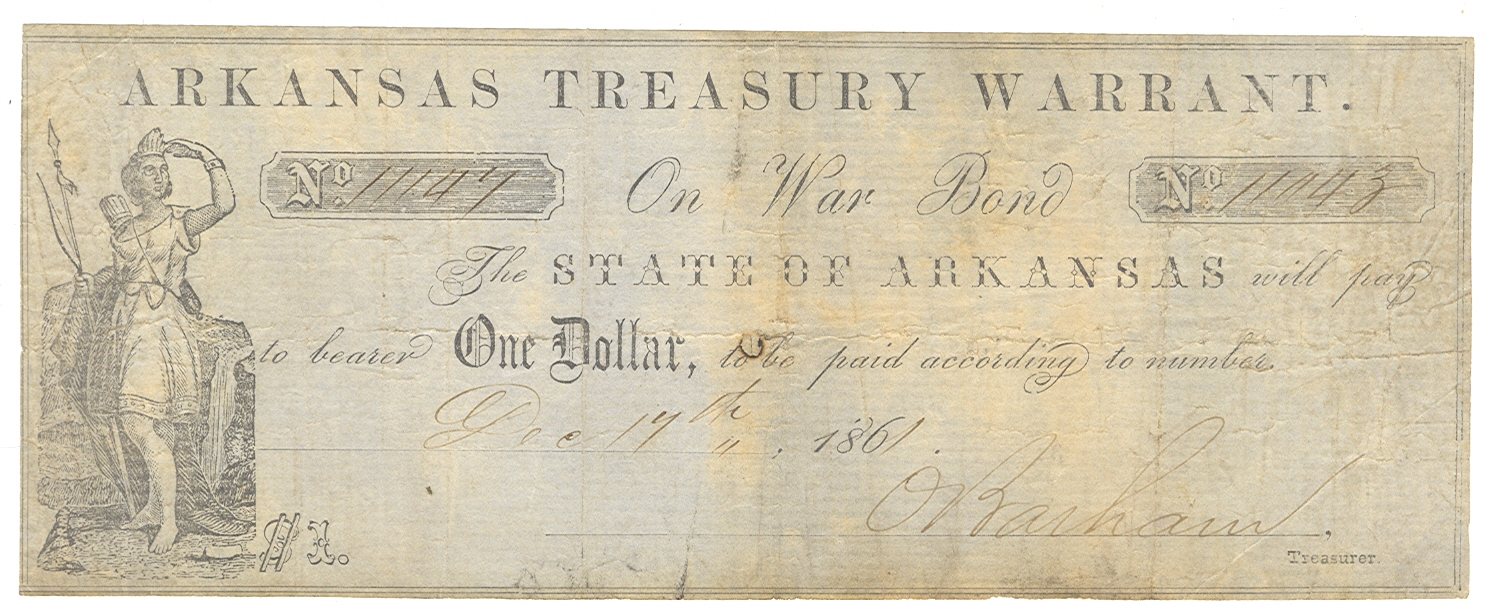 ARKANSAS TREASURY WARRANT.
No. 11147 On War Bond No. 11143
The STATE OF ARKANSAS will pay
to bearer One Dollar, to be paid according to number
Dec 17th, 1861.
O Barham,
$1. Treasurer.